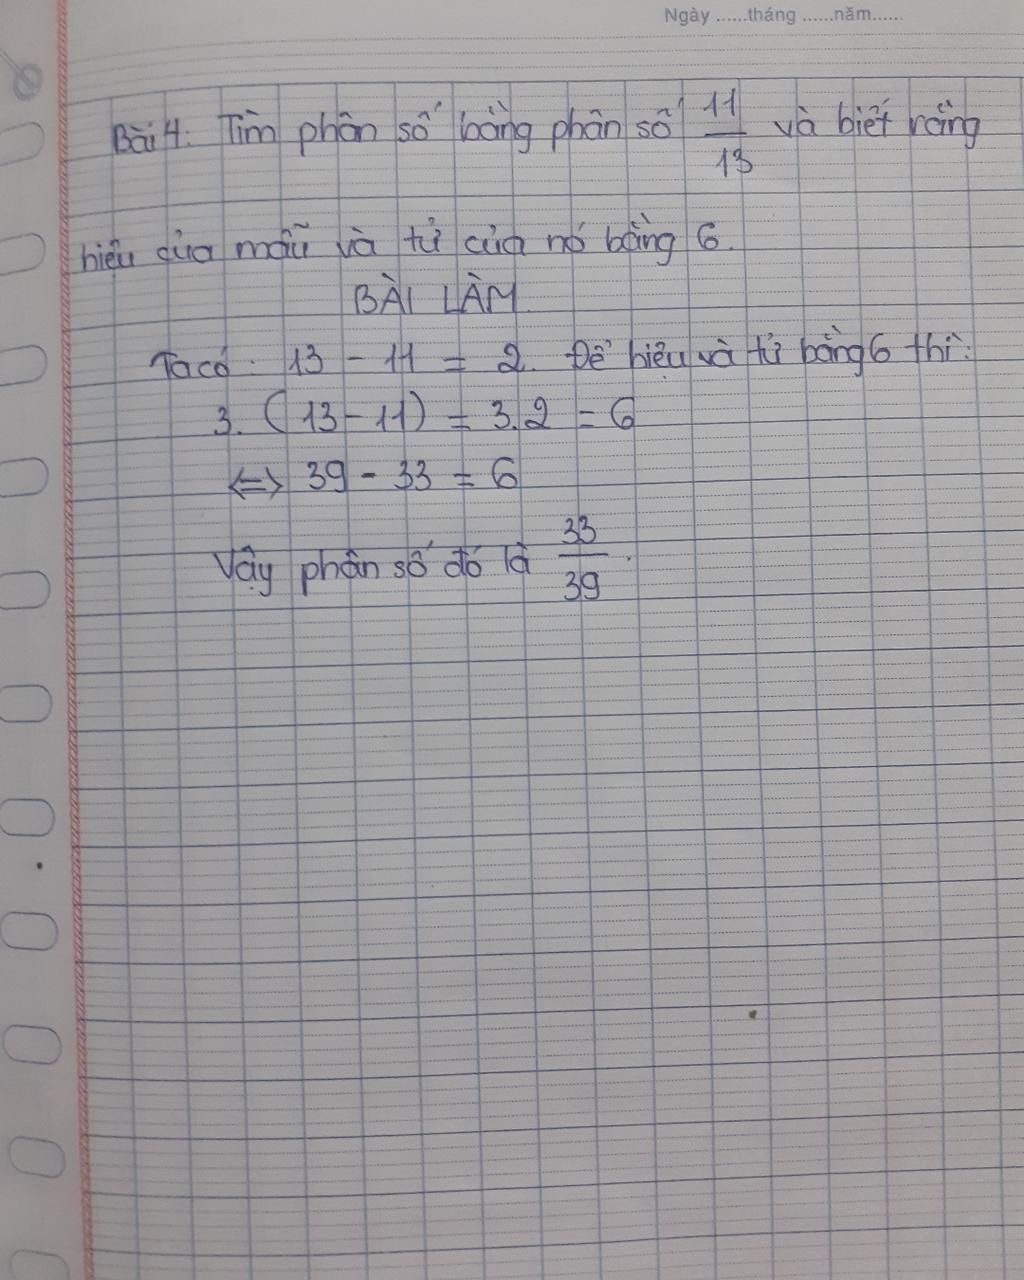 Ngày ......tháng ......năm......
Bài 4: Tìm phân số bằng phân số 11/13 và biết rằng
hiệu của mẫu và tử của nó bằng 6.
BÀI LÀM
Ta có: 13 - 11 = 2. Để hiệu và tử bằng 6 thì:
3. (13 - 11) = 3.2 = 6
<=> 39 - 33 = 6
Vậy phân số đó là 33/39.